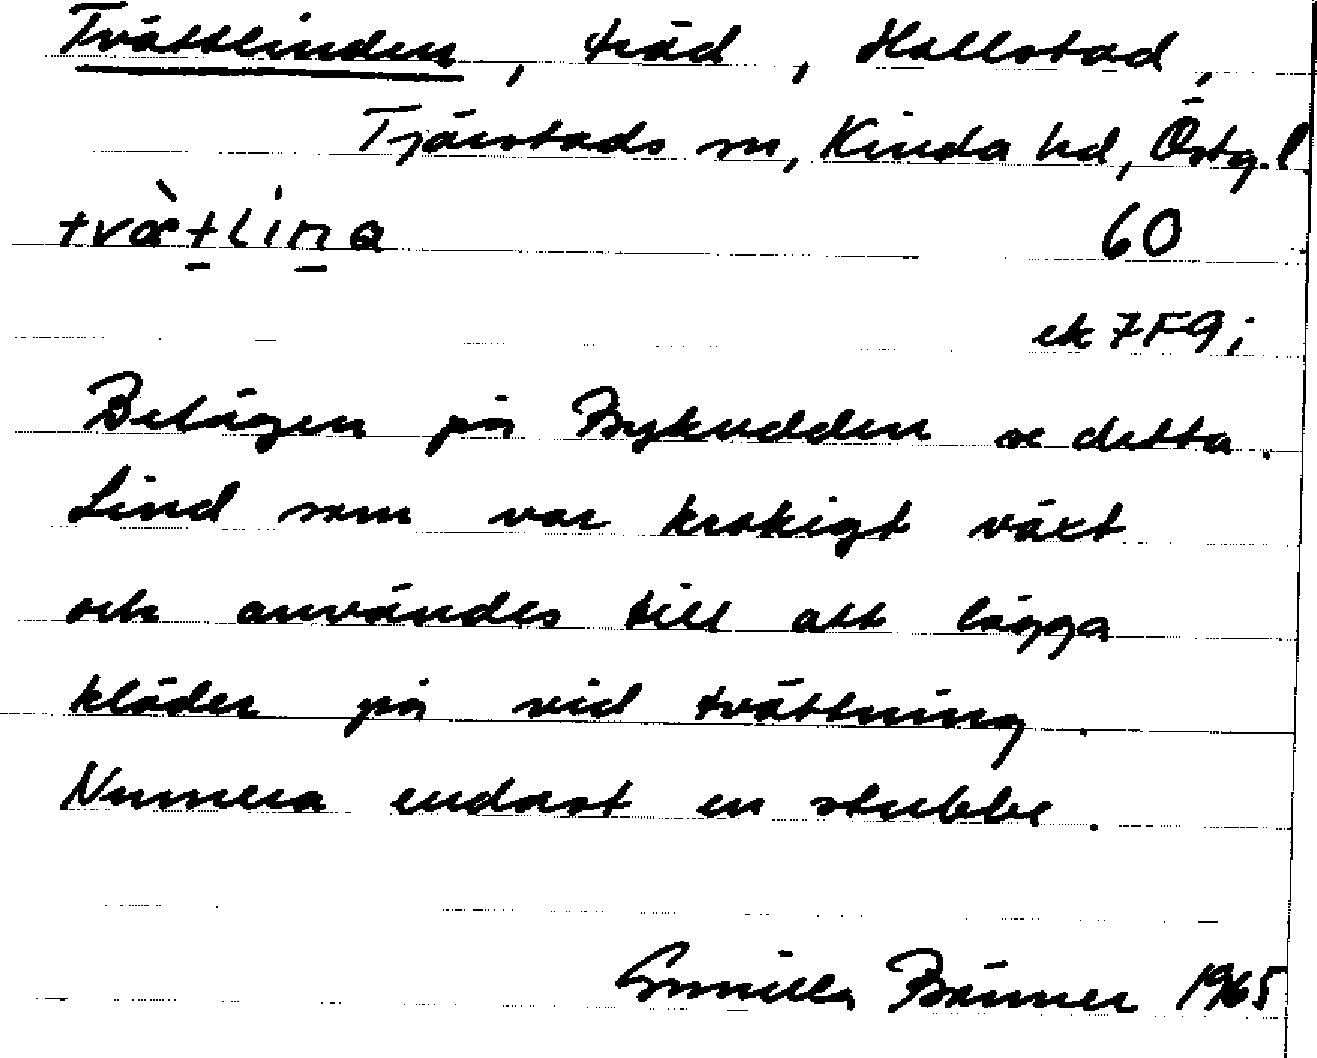 Tvättlinden, träd, Hallstad,
Tjärstads sn, Kinda hd, Östg. l.
tvàtlina 60
ek 7F9i
Belägen på Bykudden se detta.
Lind som var krokigt växt
och användes till att lägga
kläder på vid tvättning.
Numera endast en stubbe.
Gunilla Bränner 1965